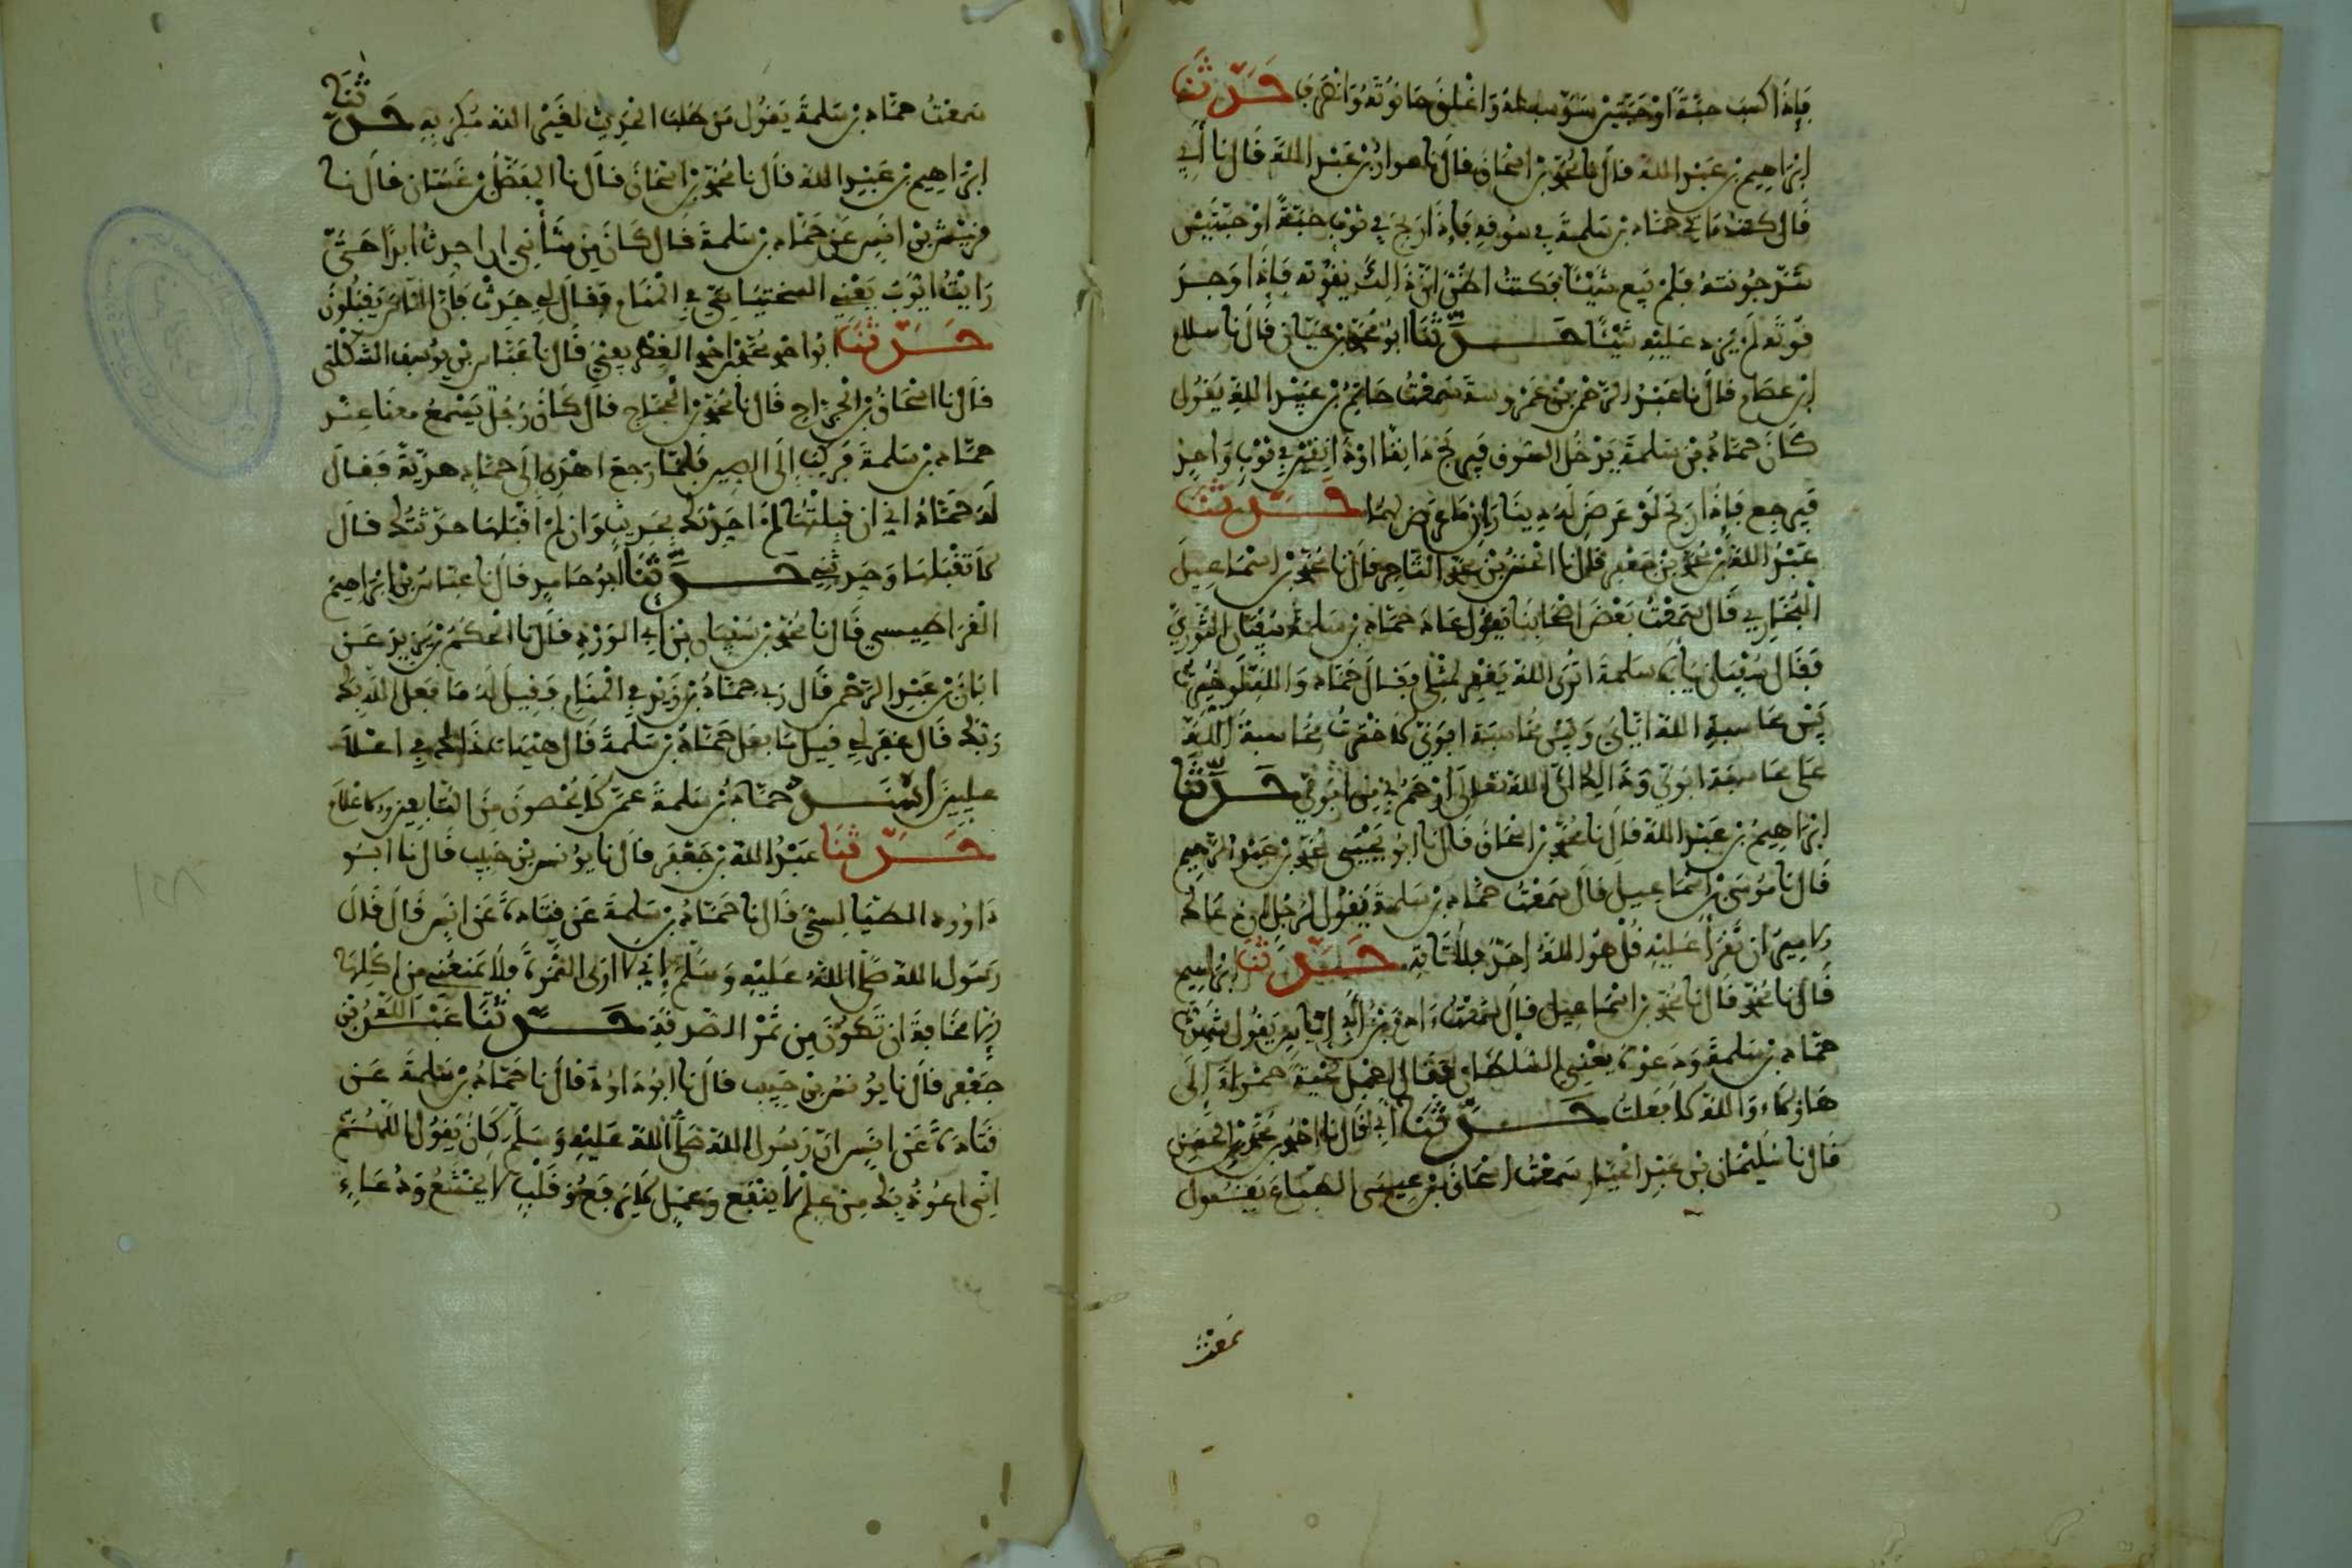 فإذا كسب حبة أو حبتين شد سفطه وأغلق حانوته وانصرف حَدَّثَنَا
إبراهيم بن عبد الله قال نا محمد بن إسحاق قال نا سوار بن عبد الله قال نا أبي
قال كنت ءاتي حماد بن سلمة في سوقه فإذا ربح في ثوب حبة أو حبتين
شد جونته فلم يبع شيئا فكنت أظن أن ذالك يقوته فإذا وجد
قوته لم يزد عليه شيئا حَدَّثَنَا أبو محمد بن حيان قال نا
قال نا عبد الرحمن بن عمر رسته سمعت حاتم بن عبيد الله يقول
كان حماد بن سلمة يدخل السوق فيربح دانقا أو دانقين في ثوب واحد
فيرجع فإذا ربح لو عرض له دينار ما عرض لهما حَدَّثَنَا
عبد الله بن محمد بن جعفر قال نا بن محمد التاجر قال نا محمد بن إسماعيل
البخاري قال سمعت بعض أصحابنا يقول عاد حماد بن سلمة سفيان الثوري
فقال سفيان يا أبا سلمة أترى الله يغفر لمثلي فقال حماد والله لو خيرت
بين محاسبة الله إياي وبين محاسبة أبوي لاخترت محاسبة الله
على محاسبة أبوي وذالك أن الله تعالى أرحم بي من أبوي حَدَّثَنَا
إبراهيم بن عبد الله قال نا محمد بن إسحاق قال نا أبو يحيى محمد بن عبد الرحيم
قال نا موسى بن إسماعيل قال سمعت حماد بن سلمة يقول لرجل إن دعاك
الامير ان تقرأ عليه قل هو الله أحد فلا تاته حَدَّثَنَا إبراهيم
قال نا محمد قال نا محمد بن إسماعيل قال سمعت ءادم بن أبي إياس يقول شهدت
حماد بن سلمة ودعوه يعني السلطان فقال أحمل لحية حمراء إلى
هاؤلاء والله لا فعلت حَدَّثَنَا أبي قال نا أحمد بن محمد بن الحسن
قال نا سليمان بن عبد الجبار سمعت إسحاق بن عيسى الطباع يقول
سمعت
سمعت حماد بن سلمة يقول من طلب الحديث لغير الله مكر به حَدَّثَنَا
إبراهيم بن عبد الله قال نا محمد بن إسحاق قال نا المفضل بن غسان قال نا
قريش بن أنس عن حماد بن سلمة قال كان من شأني ان احدث أبدا حتى
رايت أيوب يعني السختياني في المنام فقال لي حدث فإن الناس يقبلون
حَدَّثَنَا أبو احمد محمد بن احمد الغطريفي قال نا عباس بن يوسف الشكلي
قال نا إسحاق بن الجراح قال نا محمد بن الحجاج قال كان رجل يسمع معنا عند
حماد بن سلمة فركب إلى الصين فلما رجع أهدى إلى حماد هدية فقال
له حماد اني ان قبلتها لم احدثك بحديث وان لم اقبلها حدثتك قال
لا تقبلها وحدثني حَدَّثَنَا أبو حامد قال نا عباس بن إبراهيم
القراطيسي قال نا محمد بن سفيان بن أبي الورد قال نا الحكم بن يزيد عن
ابان بن عبد الرحمن قال رءي حماد بن زيد في المنام فقيل له ما فعل الله بك
ربك قال غفر لي قيل ما فعل حماد بن سلمة قال هيهات ذاك في أعلا
عليين أسند حماد بن سلمة عمن لا يحصون من التابعين والاعلام
حَدَّثَنَا عبد الله بن جعفر قال نا يونس بن حبيب قال نا أبو
داوود الطيالسي قال نا حماد بن سلمة عن قتادة عن أنس قال قال
رسول الله صلى الله عليه وسلم إني لا أرى التمرة فلا يمنعني من اكلها
إلا مخافة ان تكون من تمر الصدقة حَدَّثَنَا عبد الله بن
جعفر قال نا يونس بن حبيب قال نا أبو داود قال نا حماد بن سلمة عن
قتادة عن أنس ان رسول الله صلى الله عليه وسلم كان يقول اللهم
إني أعوذ بك من علم لا ينفع وعمل لا يرفع وقلب لا يخشع ودعاء